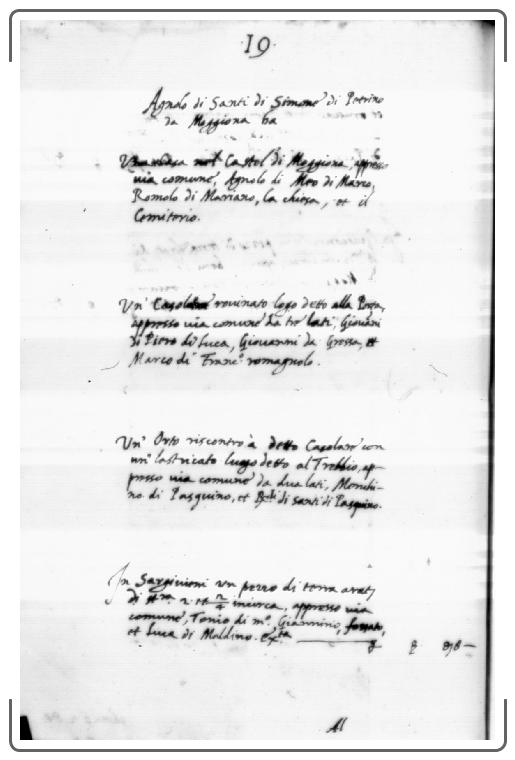 ·19·
Agnolo di Santi di Simone di Petrino
da Moggiona ha
Una casa nel Castel di Moggiona appresso
via comune, Agnolo di Meo di Marco,
Romolo di Mariano, la chiesa, et il
Cemiterio.
Un' Casolare rovinato logo detto alla Porta,
appresso via comune da tre lati, Giovanni
di Piero di Luca, Giovanni da Grossa, et
Marco di Franc.º romagnolo.
Un' Orto riscontro à detto Casolare con
un' lastricato luogo detto al Trebbio, ap-
presso via comune da dua lati, Menchi-
no di Pasquino, et Rede di Santi di Pasquino.
In un pezzo di terra
di incirca, appresso via
comune, Tonio di m.º Giannino, fossato,
et Luca di Maldino.
Al